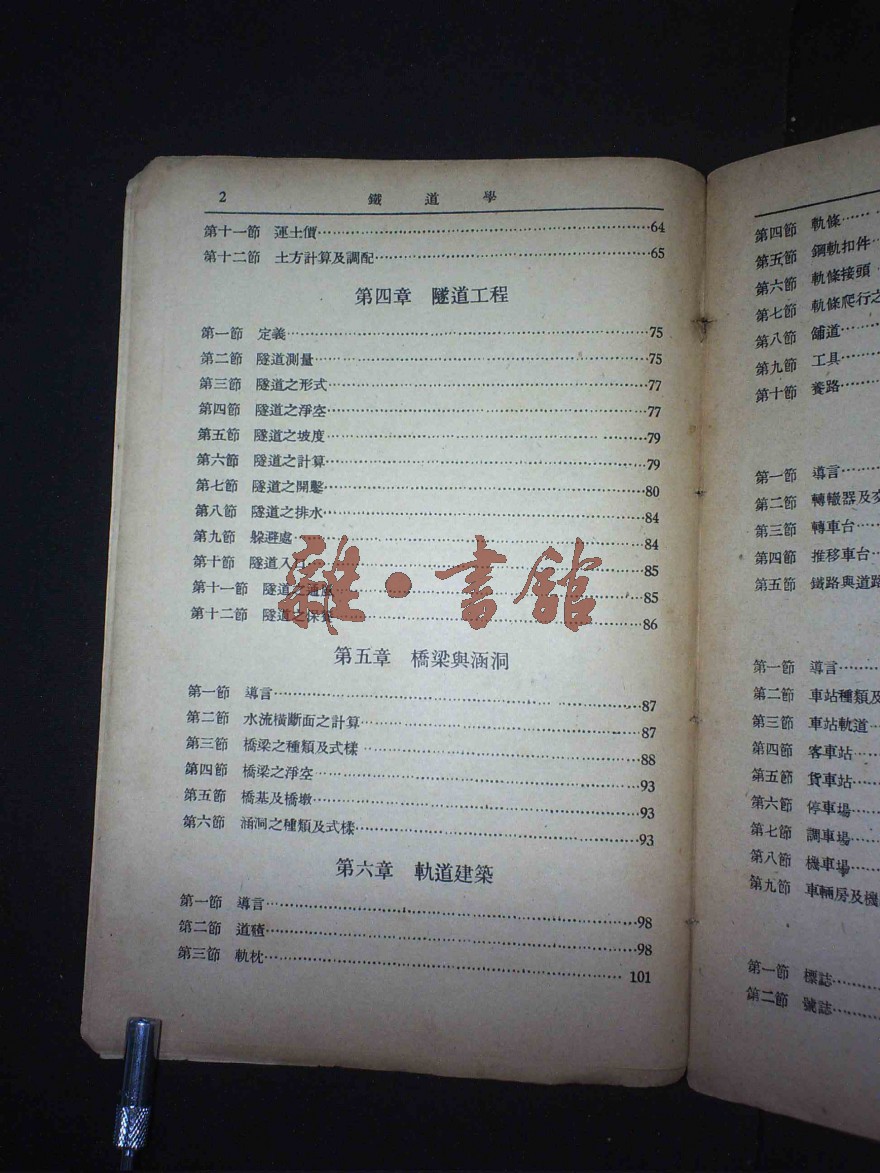 2 鐵道學
第十一節 運土價……64
第十二節 土方計算及調配……65
第四章 隧道工程
第一節 定義……75
第二節 隧道測量……75
第三節 隧道之形式……77
第四節 隧道之淨空……77
第五節 隧道之坡度……79
第六節 隧道之計算……79
第七節 隧道之開鑿……80
第八節 隧道之排水……84
第九節 躲避處……84
第十節 隧道入口……85
第十一節 隧道之通風……85
第十二節 隧道之保養……86
第五章 橋梁與涵洞
第一節 導言……87
第二節 水流橫斷面之計算……87
第三節 橋梁之種類及式樣……88
第四節 橋梁之淨空……93
第五節 橋基及橋墩……93
第六節 涵洞之種類及式樣……93
第六章 軌道建築
第一節 導言……98
第二節 道碴……98
第三節 軌枕……101
雜·書館
第四節 軌條……
第五節 鋼軌扣件……
第六節 軌條接頭
第七節 軌條爬行之
第八節 舖道……
第九節 工具……
第十節 養路……
第一節 導言……
第二節 轉轍器及
第三節 轉車台……
第四節 推移車台……
第五節 鐵路與道路
第一節 導言……
第二節 車站種類及
第三節 車站軌道……
第四節 客車站……
第五節 貨車站……
第六節 停車場……
第七節 調車場……
第八節 機車場……
第九節 車輛房及機
第一節 標誌……
第二節 號誌……